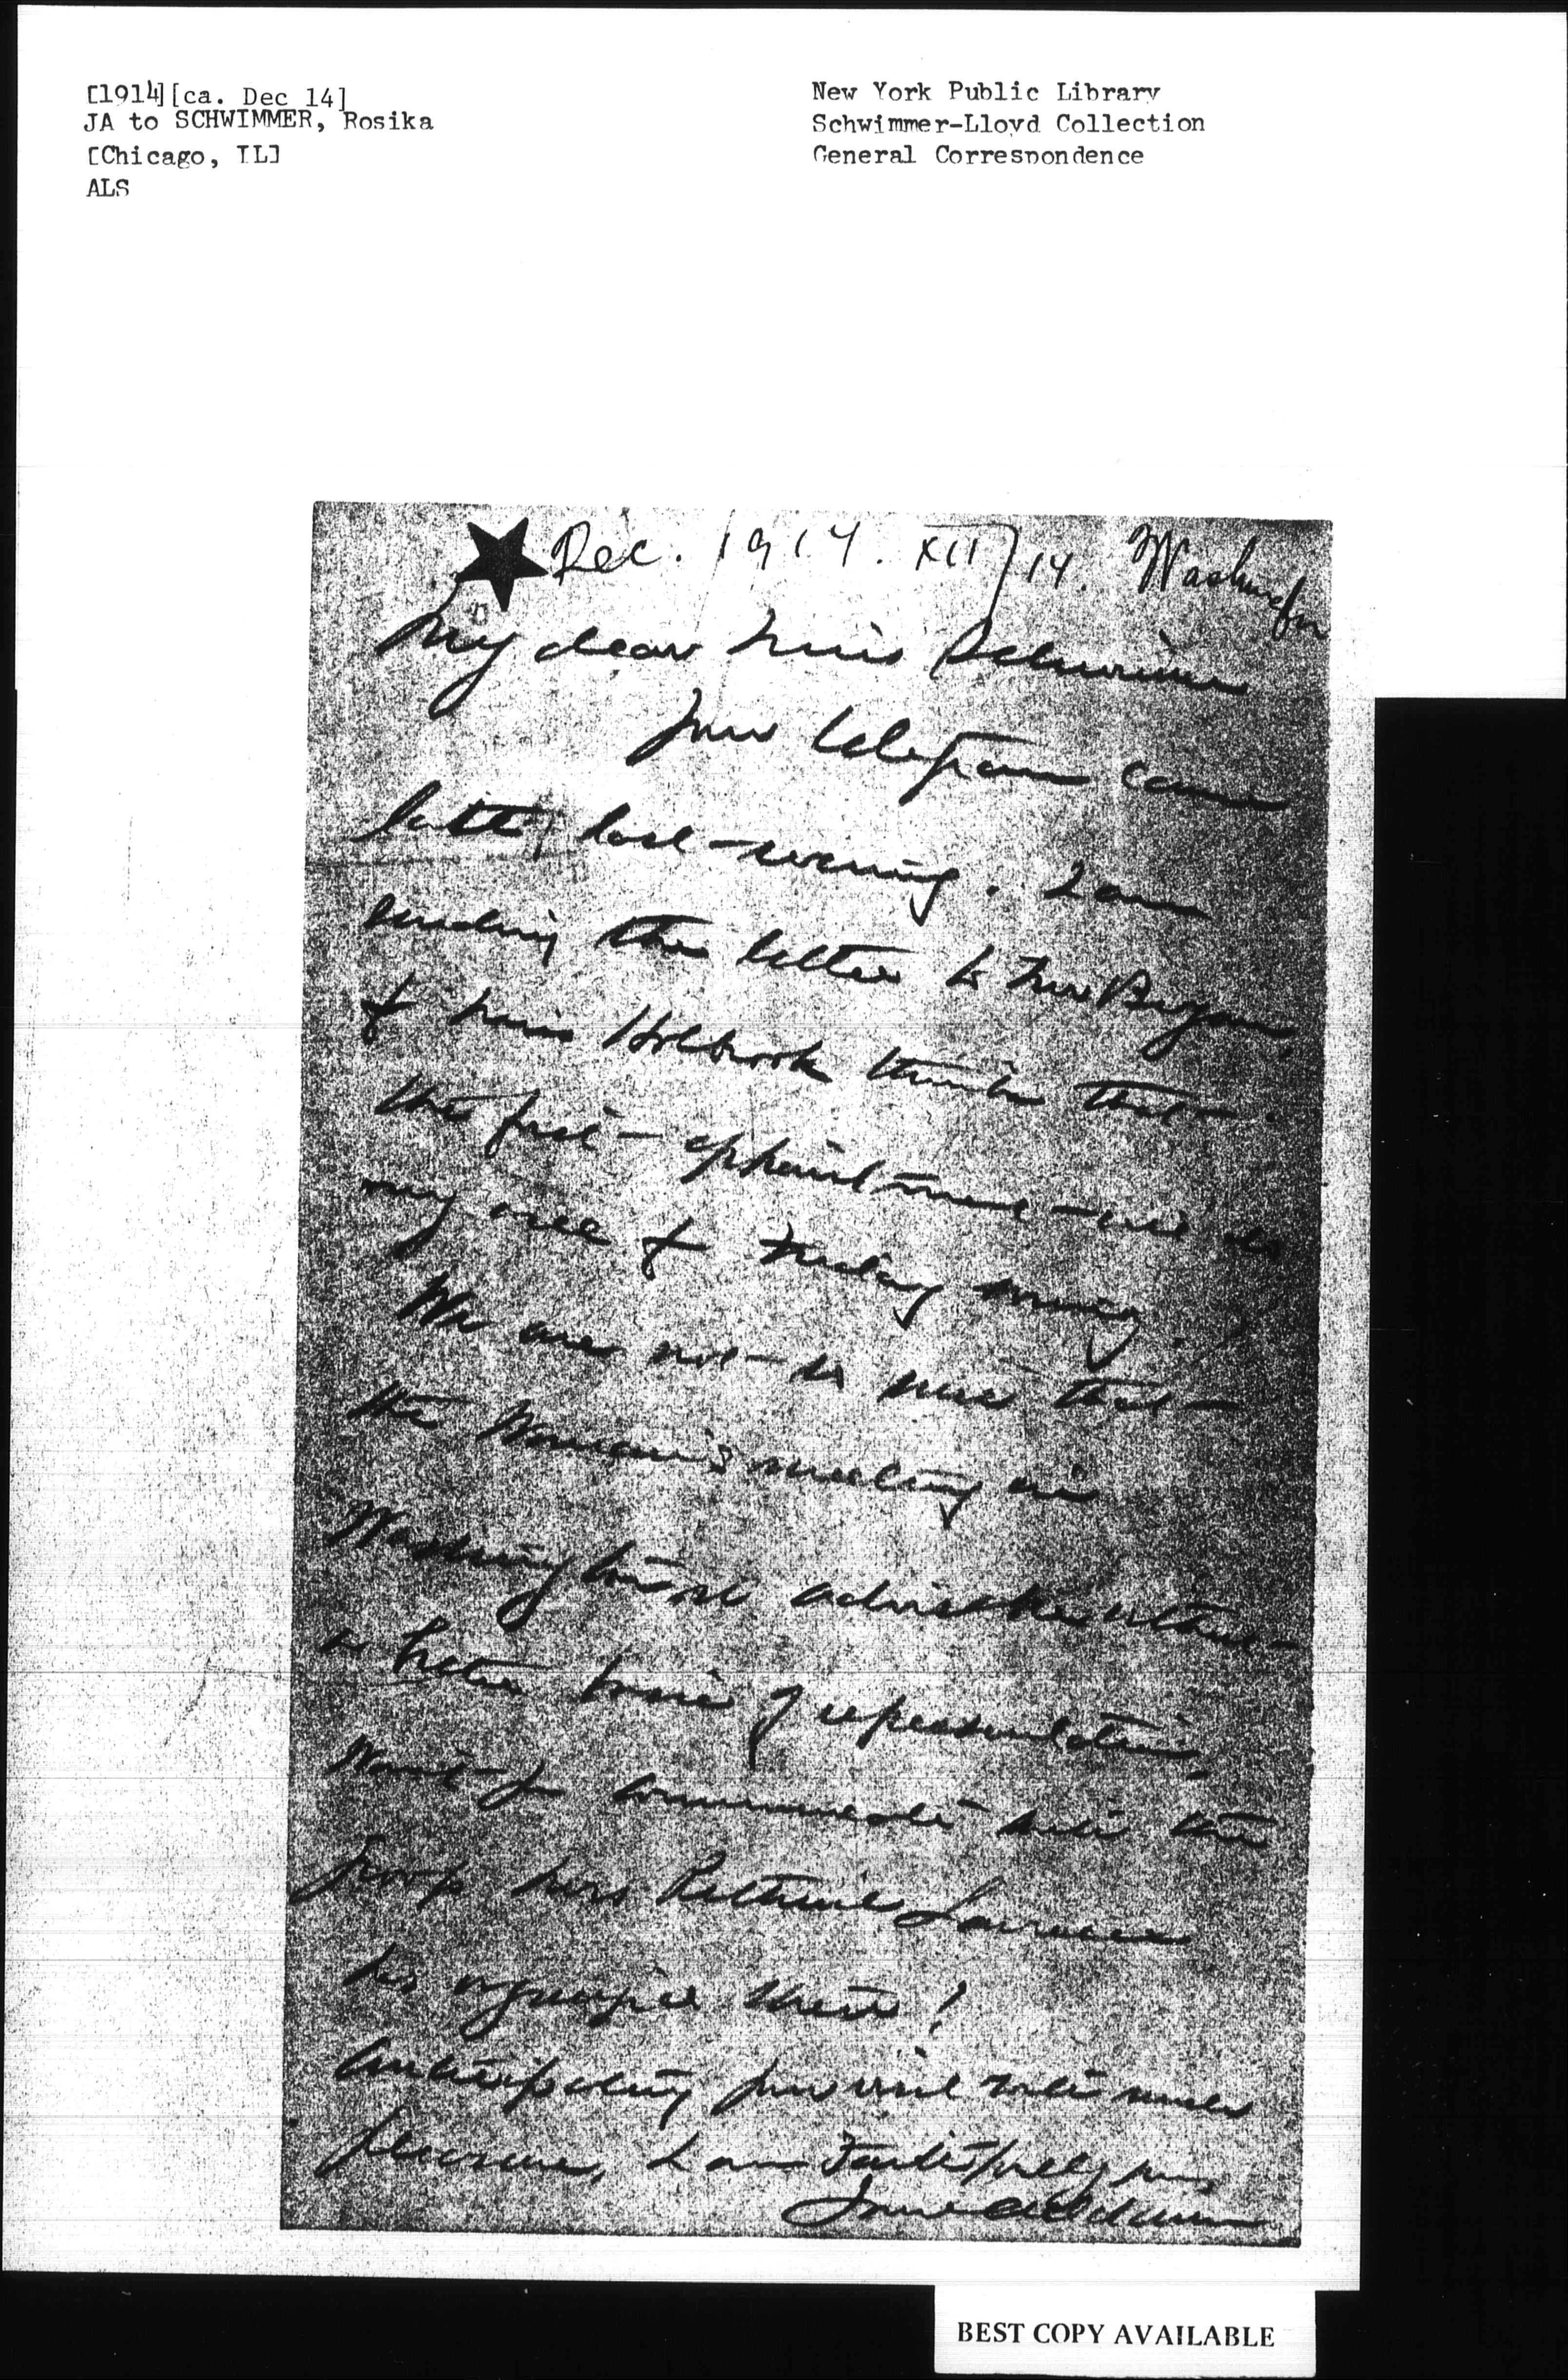 [1914][ca. Dec 14]
JA to SCHWIMMER, Rosika
[Chicago, IL]
ALS
New York Public Library
Schwimmer-Lloyd Collection
General Correspondence
Dec. 1914. XII/14. Washington
My dear Miss Schwimmer
Your telegram came
late last evening. I am
sending the letter to Mrs Bryan,
& Miss Holbrook thinks that
the first appointment
may &  morning.
We are not so sure that
the Woman's meeting in
Washington is advisable without
a better basis of representation.
Wait for communicate with the
group Mrs Pethick Lawrence
has organized there!
Anticipating your visit with much
pleasure, I am Faithfully yours
Jane Addams
BEST COPY AVAILABLE